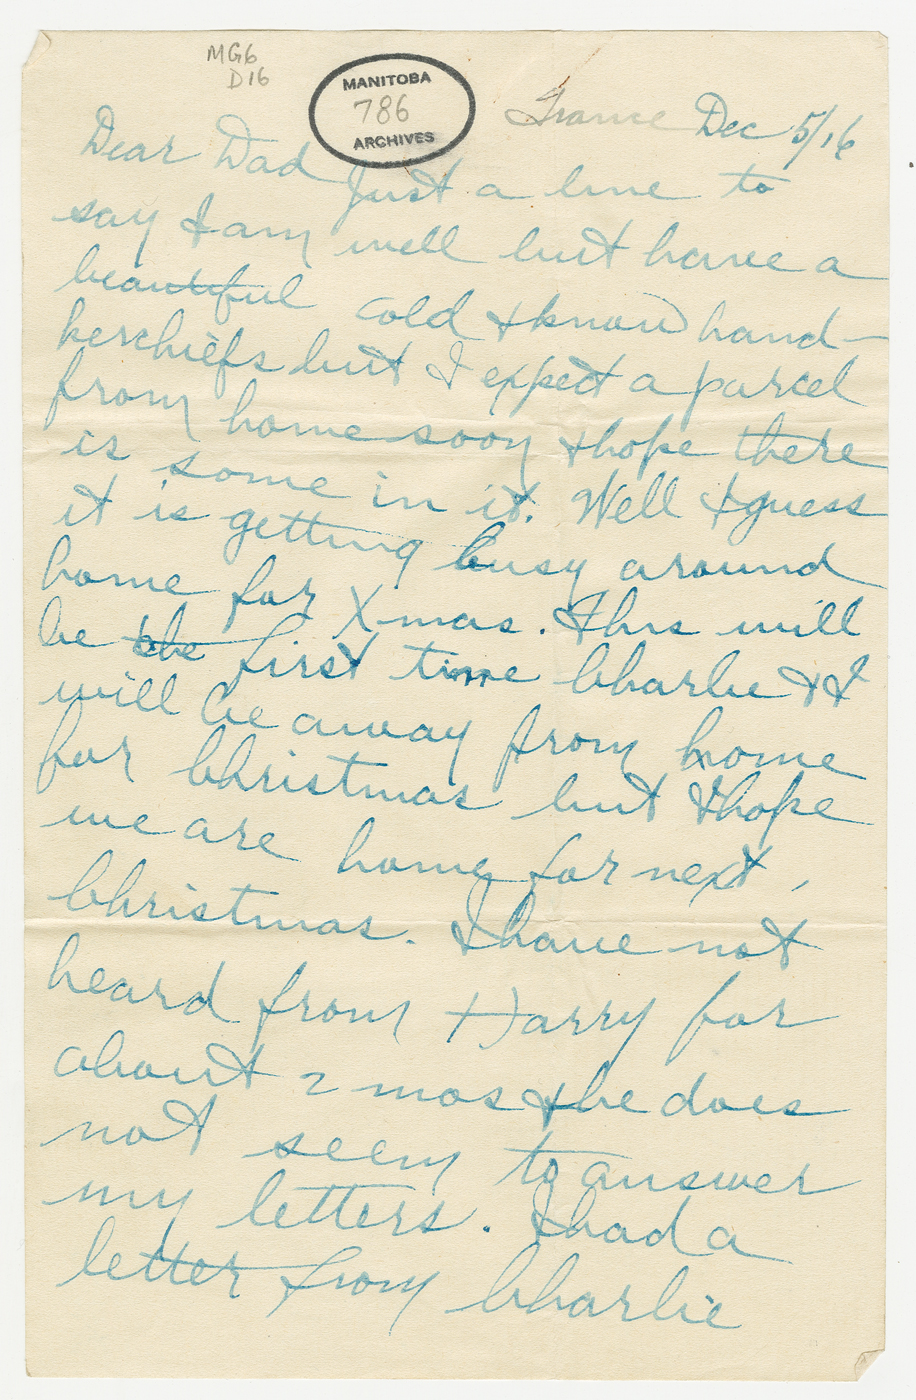 MG6
D16
MANITOBA
786
ARCHIVES
France Dec 5/16
Dear Dad Just a line to
say I am well but have a
beautiful cold & know hand-
kerchiefs but I expect a parcel
from home soon & hope there
is some in it. Well I guess
it is getting busy around
home for Xmas. This will
be the first time Charlie & I
will be away from home
for Christmas but I hope
we are home for next
Christmas. I have not
heard from Harry for
about 2 mos & he does
not seem to answer
my letters. I had a
letter from Charlie